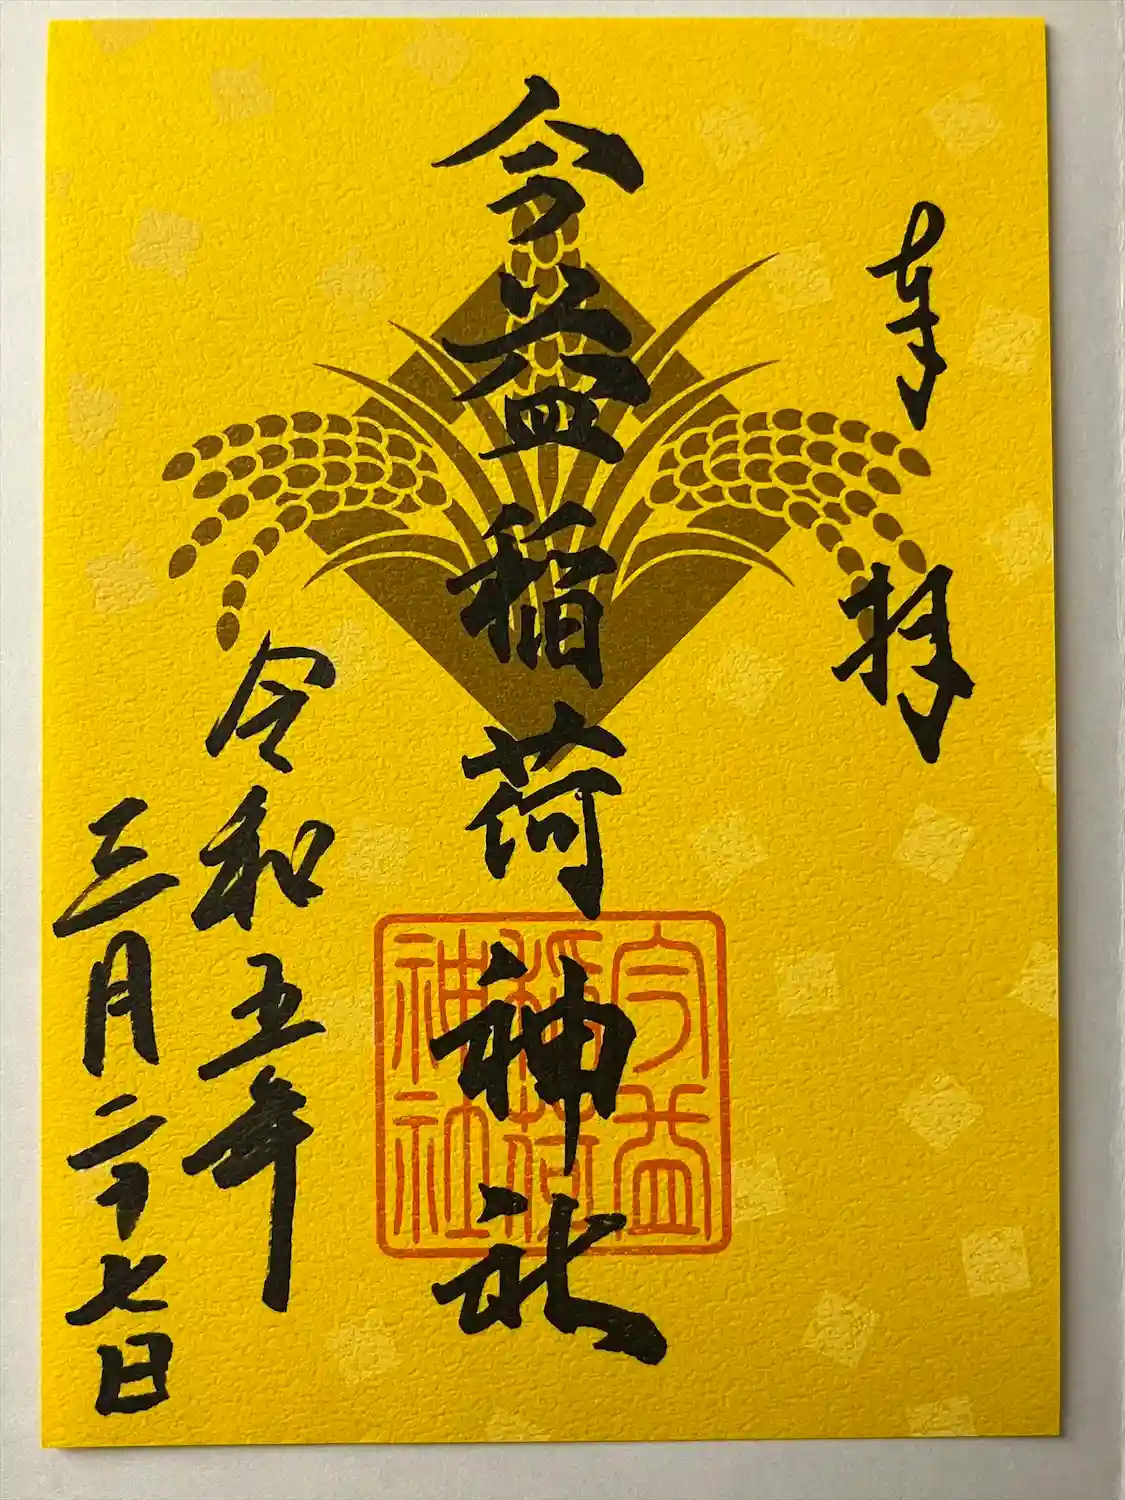 奉拝
今益稲荷神社
今益
稲荷
神社
令和五年
三月二十七日